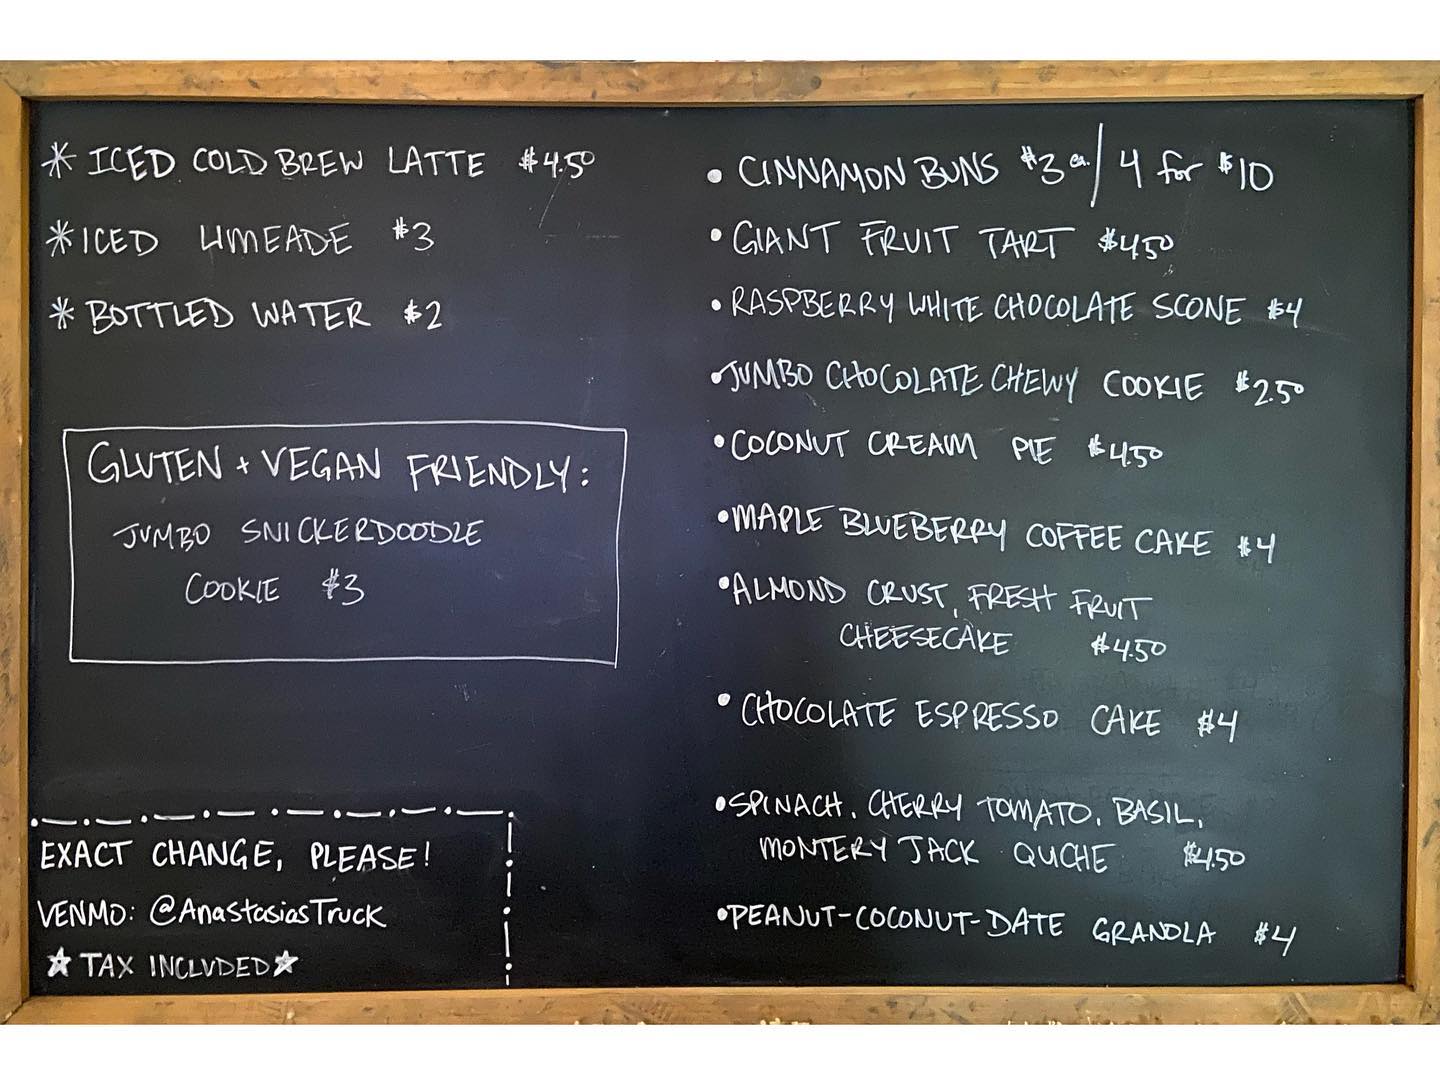 * ICED COLD BREW LATTE $4.50
* ICED LIMEADE $3
* BOTTLED WATER $2
GLUTEN + VEGAN FRIENDLY:
JUMBO SNICKERDOODLE
COOKIE $3
EXACT CHANGE, PLEASE!
VENMO: @AnastasiasTruck
☆ TAX INCLUDED ☆
• CINNAMON BUNS $3 ea. / 4 for $10
• GIANT FRUIT TART $4.50
• RASPBERRY WHITE CHOCOLATE SCONE $4
• JUMBO CHOCOLATE CHEWY COOKIE $2.50
• COCONUT CREAM PIE $4.50
• MAPLE BLUEBERRY COFFEE CAKE $4
• ALMOND CRUST, FRESH FRUIT
CHEESECAKE $4.50
• CHOCOLATE ESPRESSO CAKE $4
• SPINACH, CHERRY TOMATO, BASIL,
MONTERY JACK QUCHE $4.50
• PEANUT-COCONUT-DATE GRANOLA $4